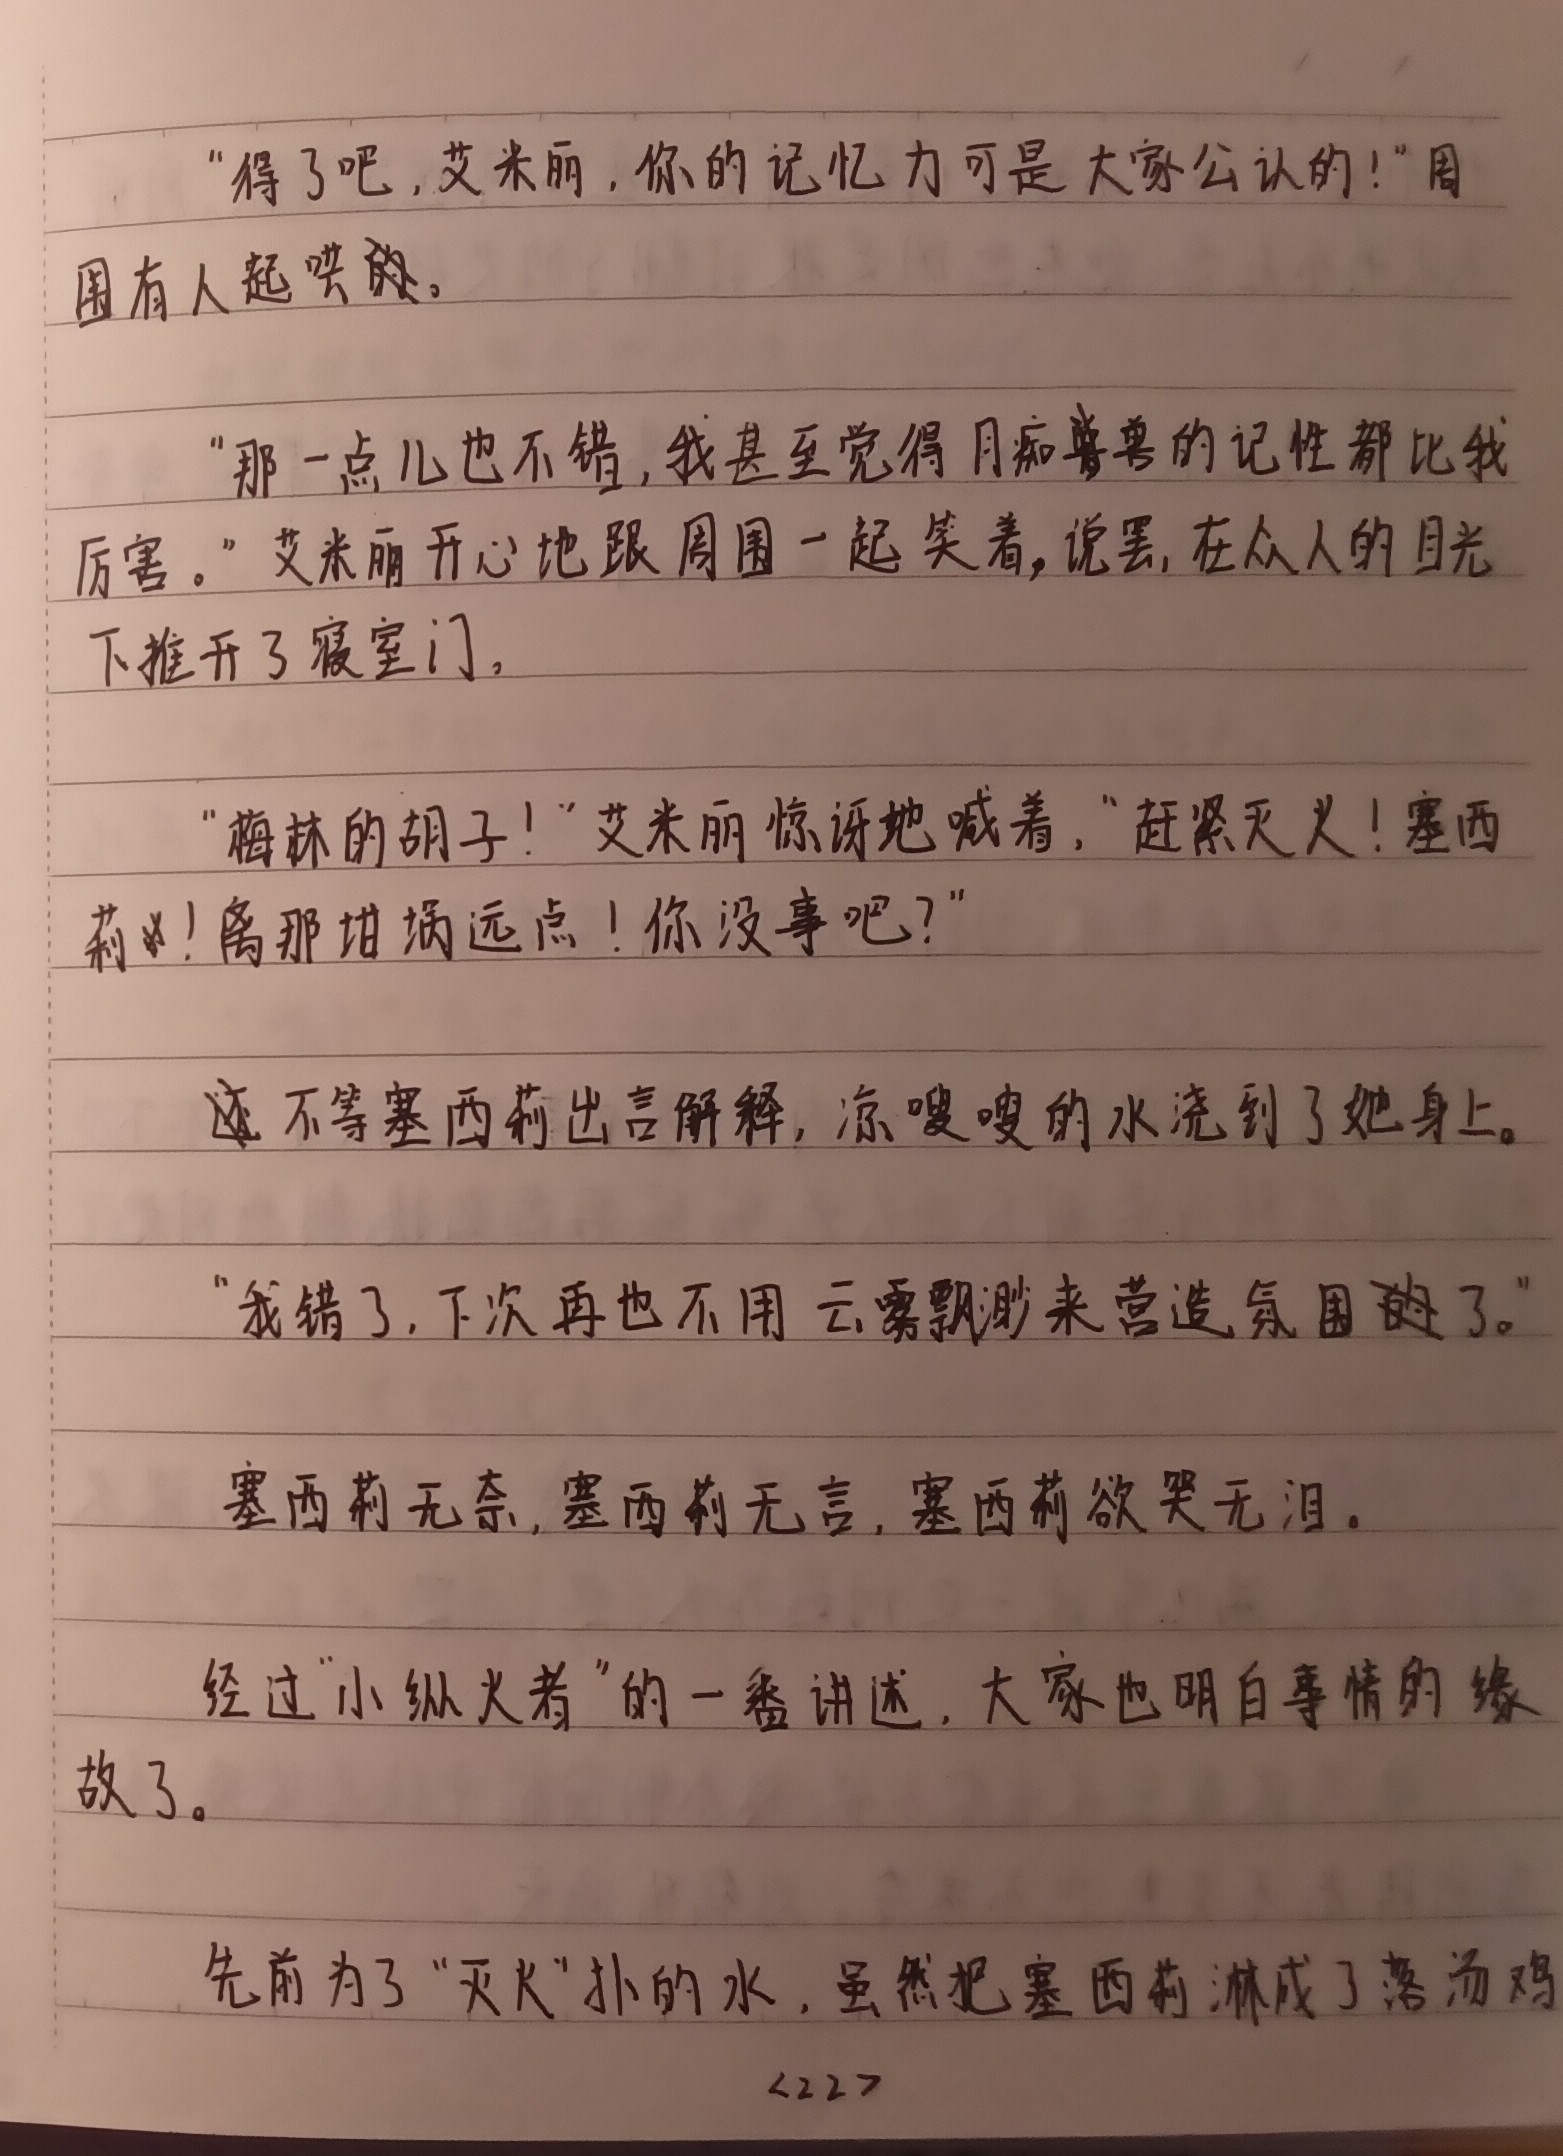 “得了吧，艾米丽，你的记忆力可是大家公认的！”周
围有人起哄。
“那一点儿也不错，我甚至觉得月痴兽的记性都比我
厉害。”艾米丽开心地跟周围一起笑着，说罢，在众人的目光
下推开了寝室门，
“梅林的胡子！”艾米丽惊讶地喊着，“赶紧灭火！塞西
莉！离那坩埚远点！你没事吧？”
不等塞西莉出言解释，凉嗖嗖的水浇到了她身上。
“我错了，下次再也不用云雾飘渺来营造氛围了。”
塞西莉无奈，塞西莉无言，塞西莉欲哭无泪。
经过“小纵火者”的一番讲述，大家也明白事情的缘
故了。
先前为了“灭火”扑的水，虽然把塞西莉淋成了落汤鸡
<22>